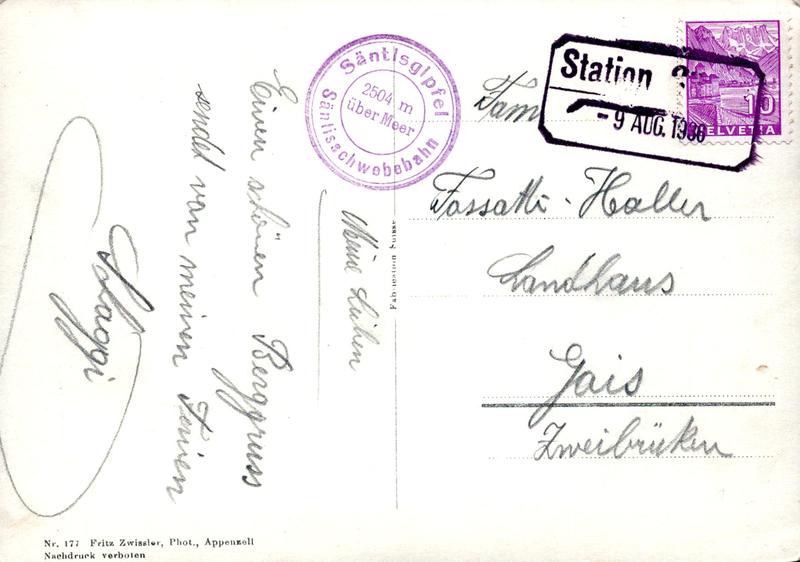 Säntisgipfel
2504 m
über Meer
Säntisschwebebahn
Station
- 9 AUG. 1936
10
HELVETIA
Fam
Fossatti-Haller
Landhaus
Gais
Zweibrüken
Meine Lieben
Einen schönen Berggruss
sendet von meinen Ferien
Fabrication Suisse
Nr. 177 Fritz Zwissler, Phot., Appenzell
Nachdruck verboten